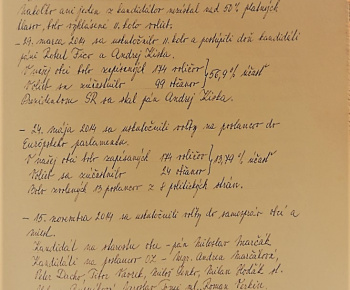 Nakoľko ani jeden z kandidátov nezískal nad 50% platných
hlasov, bolo vyhlásené II. kolo volieb.
- 29. marca 2014 sa uskutočnilo II. kolo a postúpili doň kandidáti
páni Robert Fico a Andrej Kiska.
V našej obci bolo zapísaných 174 voličov } 56,9% účasť
Volieb sa zúčastnilo 99 občanov
Prezidentom SR sa stal pán Andrej Kiska.
- 24. mája 2014 sa uskutočnili voľby na poslancov do
Európskeho parlamentu.
V našej obci bolo zapísaných 174 voličov } 13,79% účasť
Volieb sa zúčastnilo 24 občanov
Bolo zvolených 13 poslancov z 8 politických strán.
- 15. novembra 2014 sa uskutočnili voľby do samospráv obcí a
miest.
Kandidát na starostu obce - pán Miloslav Marčák
Kandidáti na poslancov OZ - Mgr. Andrea Marčáková,
Peter Ďurčo, Tibor Vavrek, Miloš Janko, Milan Hodák st.
Jaroslav ml. Roman